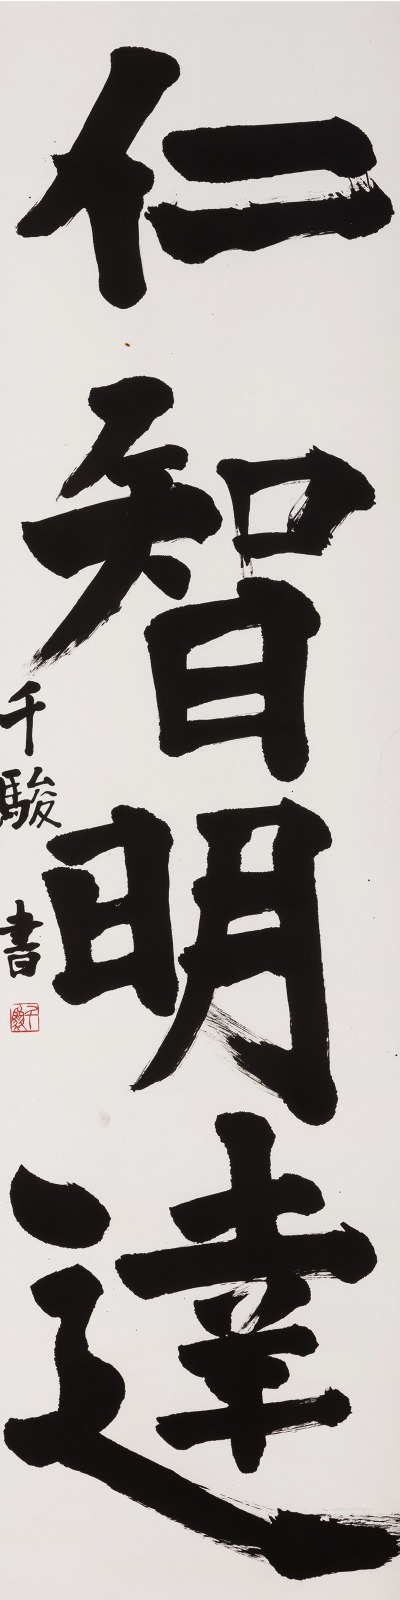 仁智明達
千駿書